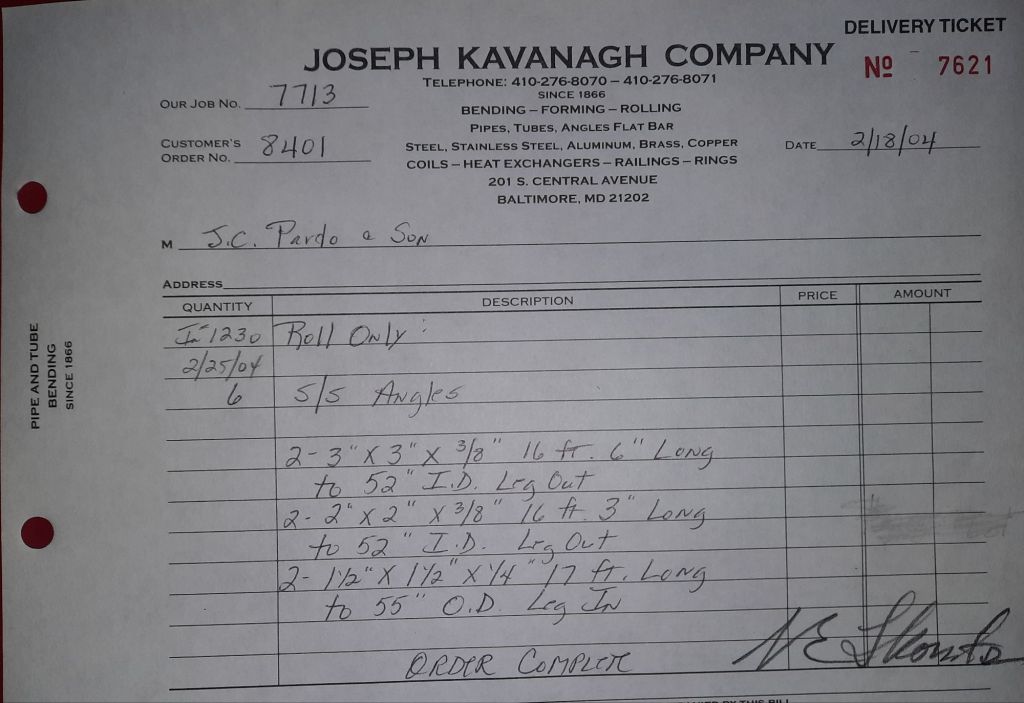 DELIVERY TICKET
JOSEPH KAVANAGH COMPANY
Nº 7621
TELEPHONE: 410-276-8070 – 410-276-8071
SINCE 1866
OUR JOB NO. 7713
BENDING – FORMING – ROLLING
PIPES, TUBES, ANGLES FLAT BAR
CUSTOMER'S ORDER NO. 8401
STEEL, STAINLESS STEEL, ALUMINUM, BRASS, COPPER
DATE 2/18/04
COILS – HEAT EXCHANGERS – RAILINGS – RINGS
201 S. CENTRAL AVENUE
BALTIMORE, MD 21202
M J.C. Pardo & Son
ADDRESS
QUANTITY DESCRIPTION PRICE AMOUNT
1230 Roll Only:
2/25/04
6 S/S Angles
2- 3" X 3" X 3/8" 16 ft. 6" Long
to 52" I.D. Leg Out
2- 2" X 2" X 3/8" 16 ft. 3" Long
to 52" I.D. Leg Out
2- 1 1/2" X 1 1/2" X 1/4" 17 ft. Long
to 55" O.D. Leg In
ORDER COMPLETE
PIPE AND TUBE
BENDING
SINCE 1866
BY THIS BILL